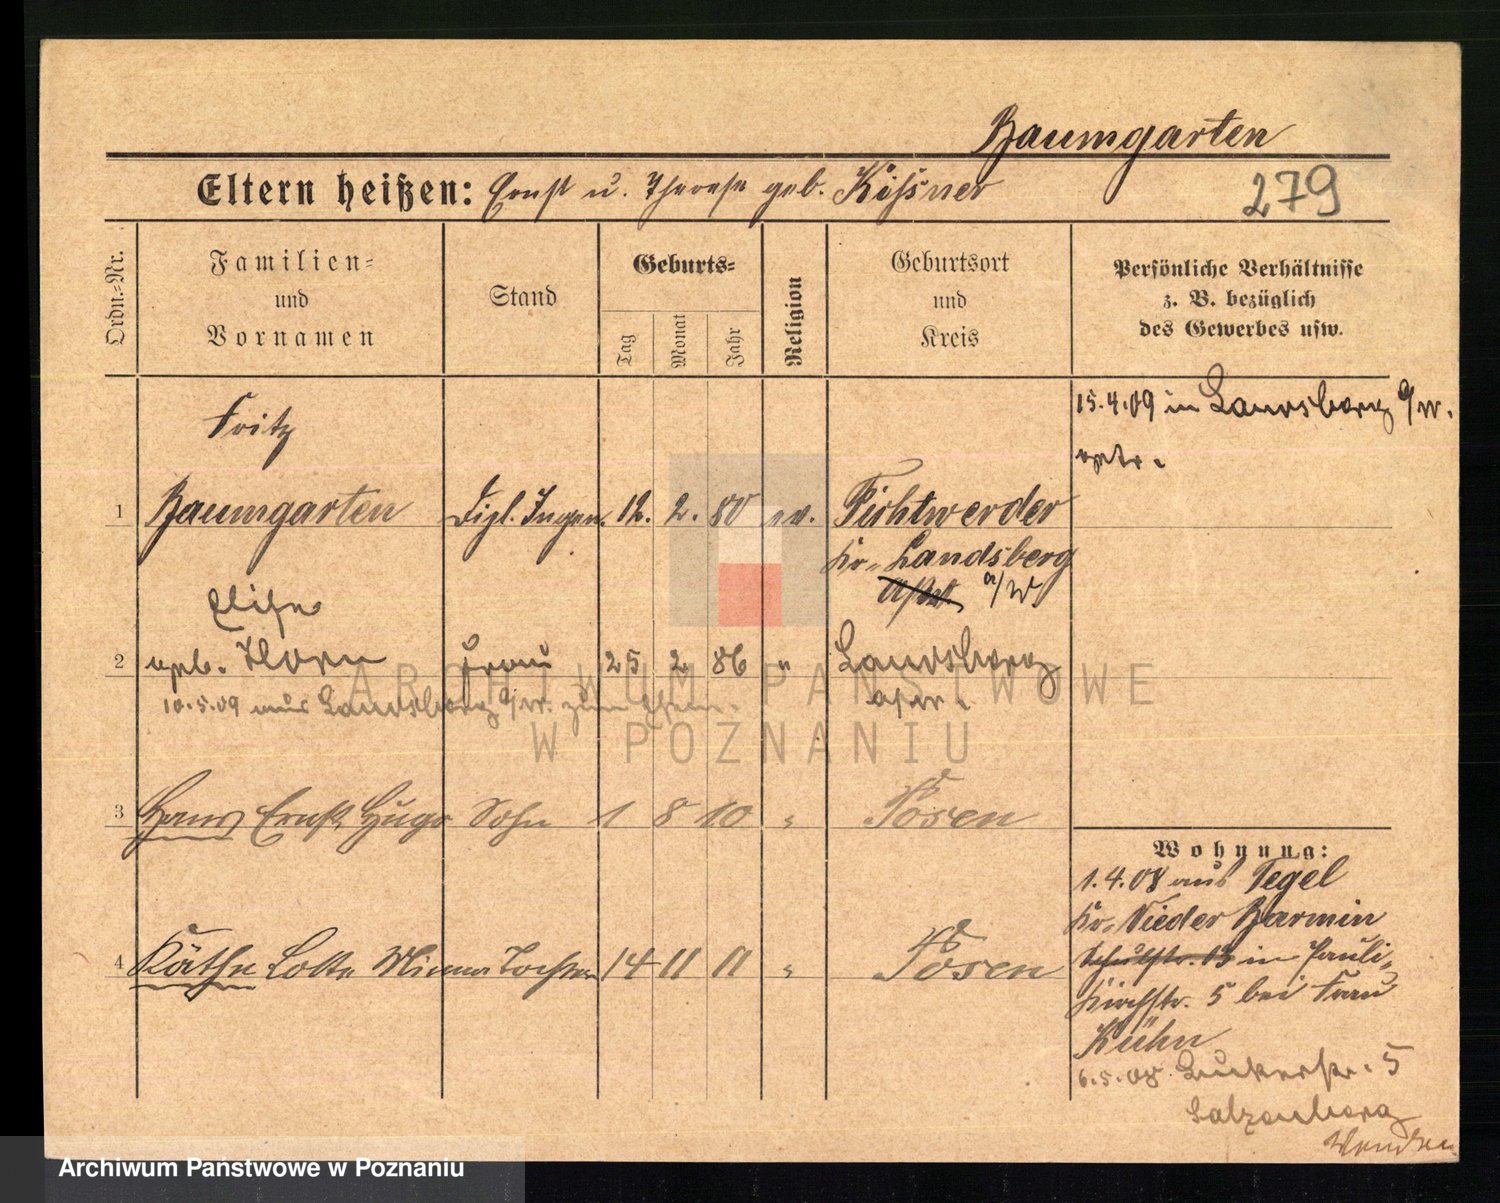 Baumgarten
Eltern heißen: Ernst u. Therese geb. Kissner
279
Ordn.-Nr.
Familien-
und
Vornamen
Stand
Geburts-
Tag
Monat
Jahr
Religion
Geburtsort
und
Kreis
Persönliche Verhältnisse
z. B. bezüglich
des Gewerbes usw.
15.4.09 in Landsberg a/W.
Fritz
1 Baumgarten Dipl. Ingen. 12. 2. 80 ev. Fichtwerder
Kr. Landsberg
a/W. a/W
Elise
2 geb. Horn Frau 25 2 86 " Landsberg
a/W.
10.5.09 aus Landsberg a/W. zum Ehem.
3 Hans Ernst Hugo Sohn 1 8 10 " Posen
Wohnung:
1.4.08 aus Tegel
Kr. Nieder Barmin
Schulstr. 13 in Pauli-
4 Käthe Lotte Minna Tochter 14 11 11 " Posen
Kirchstr. 5 bei Frau
Kühn
6.5.08 5
ARCHIWUM PAŃSTWOWE
W POZNANIU
Archiwum Państwowe w Poznaniu